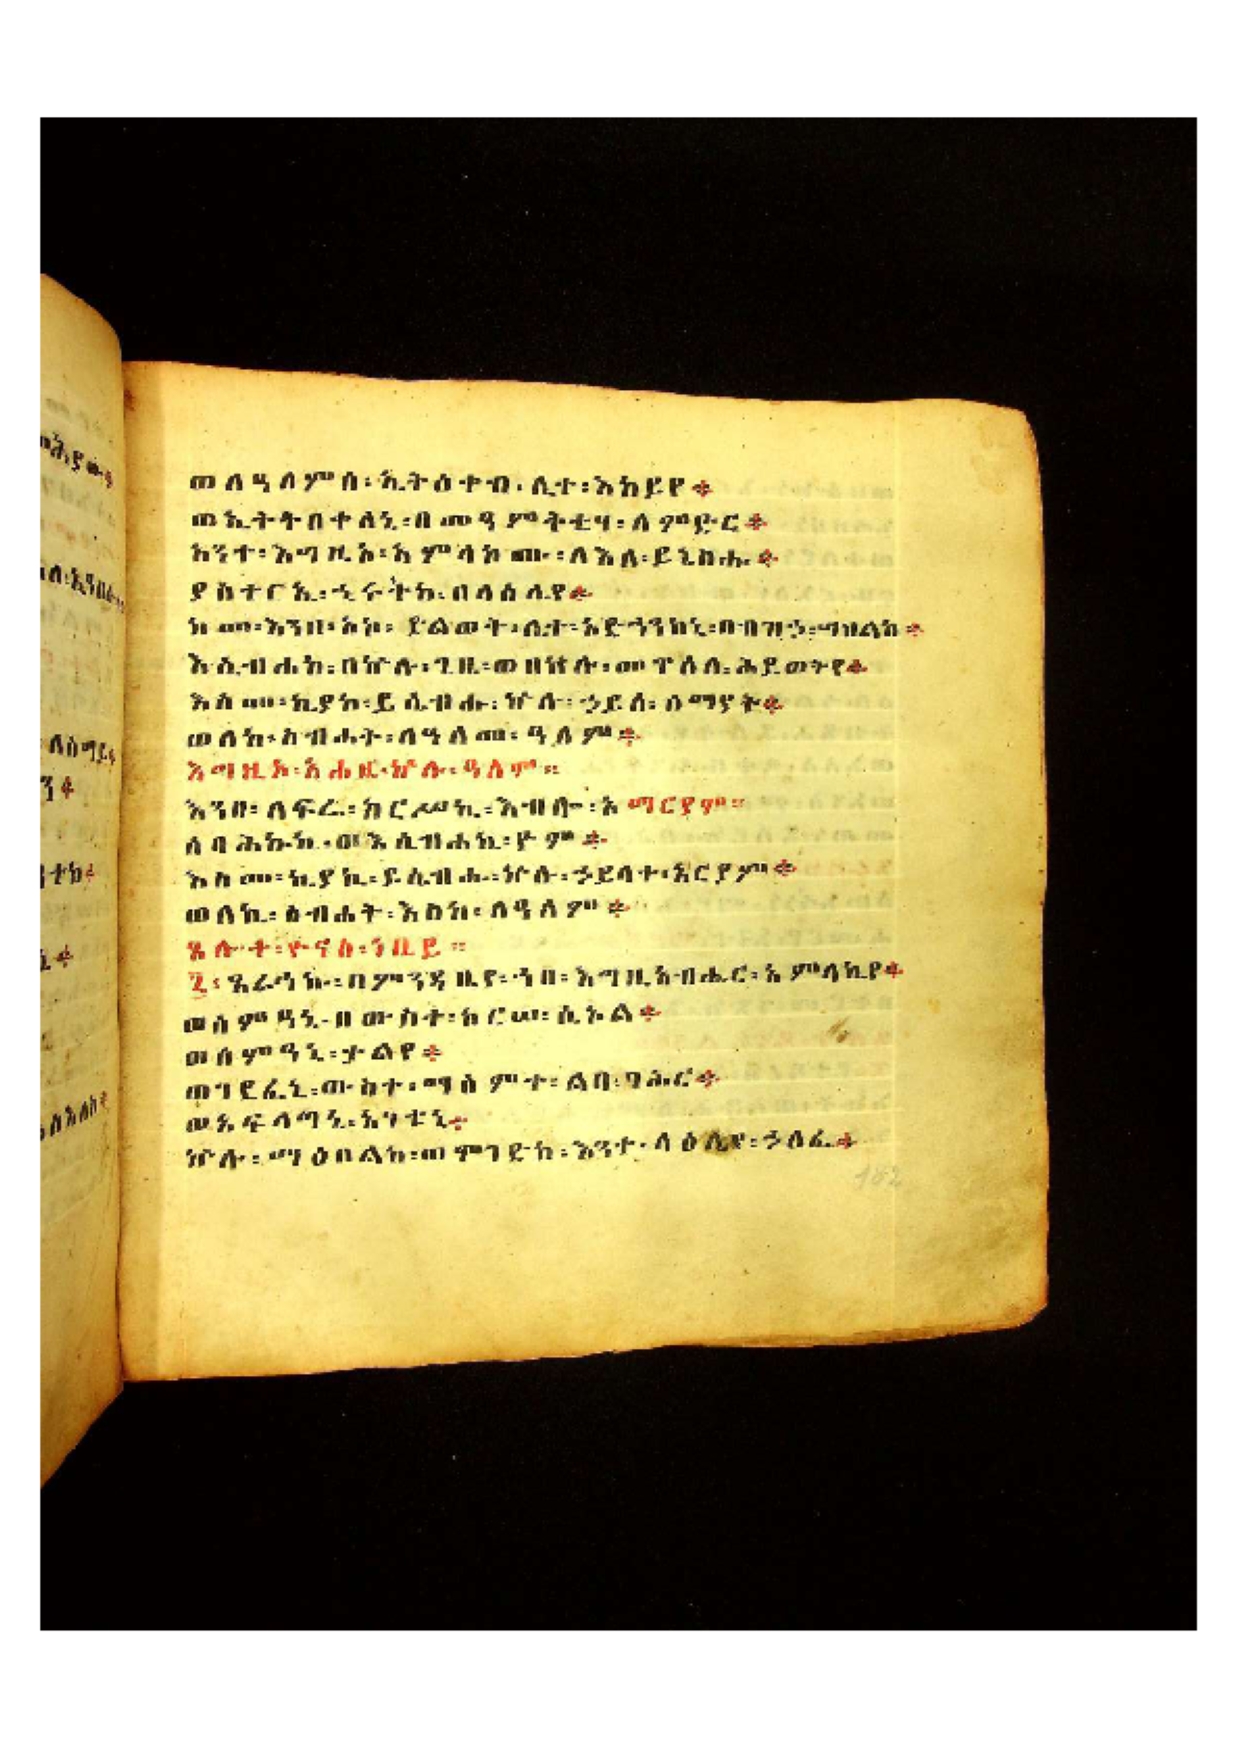 ወለዓለምሰ፡ኢትዕቀብ፡ሊተ፡እከይየ።
ወኢትትበቀለኒ፡በመዓምትቲሃ፡ለምድር።
አንተ፡እግዚኦ፡አምላኮሙ፡ለእለ፡ይኔስሑ።
ያስተርኢ፡ኂሩትከ፡በላዕሌየ።
ከመ፡እንዘ፡አኮ፡ድልወት፡ሊተ፡አድኅንከኒ፡በብዝኃ፡ሣህልከ።
እሴብሐከ፡በኵሉ፡ጊዜ፡ወበኵሉ፡መዋዕለ፡ሕይወትየ።
እስመ፡ኪያከ፡ይሴብሑ፡ኵሉ፡ኃይለ፡ሰማያት።
ወለከ፡ስብሐት፡ለዓለመ፡ዓለም።
እግዚኦ፡አሐዜ፡ኵሉ፡ዓለም።
እንበ፡ለፍሬ፡ከርሥኪ፡እብሎ፡አማርያም።
ሰባሕኩከ፡ወእሴብሐኪ፡ዮም።
እስመ፡ኪያኪ፡ይሴብሑ፡ኵሉ፡ኃይላተ፡አርያም።
ወለኪ፡ስብሐት፡እስከ፡ለዓለም።
ጸሎተ፡ዮናስ፡ነቢይ።
፯፡ጸራኅኩ፡በምንዳቤየ፡ኀበ፡እግዚአብሔር፡አምላኪየ።
ወሰምዓኒ፡በውስተ፡ከርሠ፡ሲኦል።
ወሰምዓኒ፡ቃልየ።
ወገደፈኒ፡ውስተ፡ማዕምቀ፡ልበ፡ባሕር።
ወአፍላግኒ፡አገቱኒ።
ኵሉ፡ማዕበልከ፡ወሞገድከ፡እንተ፡ላዕሌየ፡ኃለፈ።